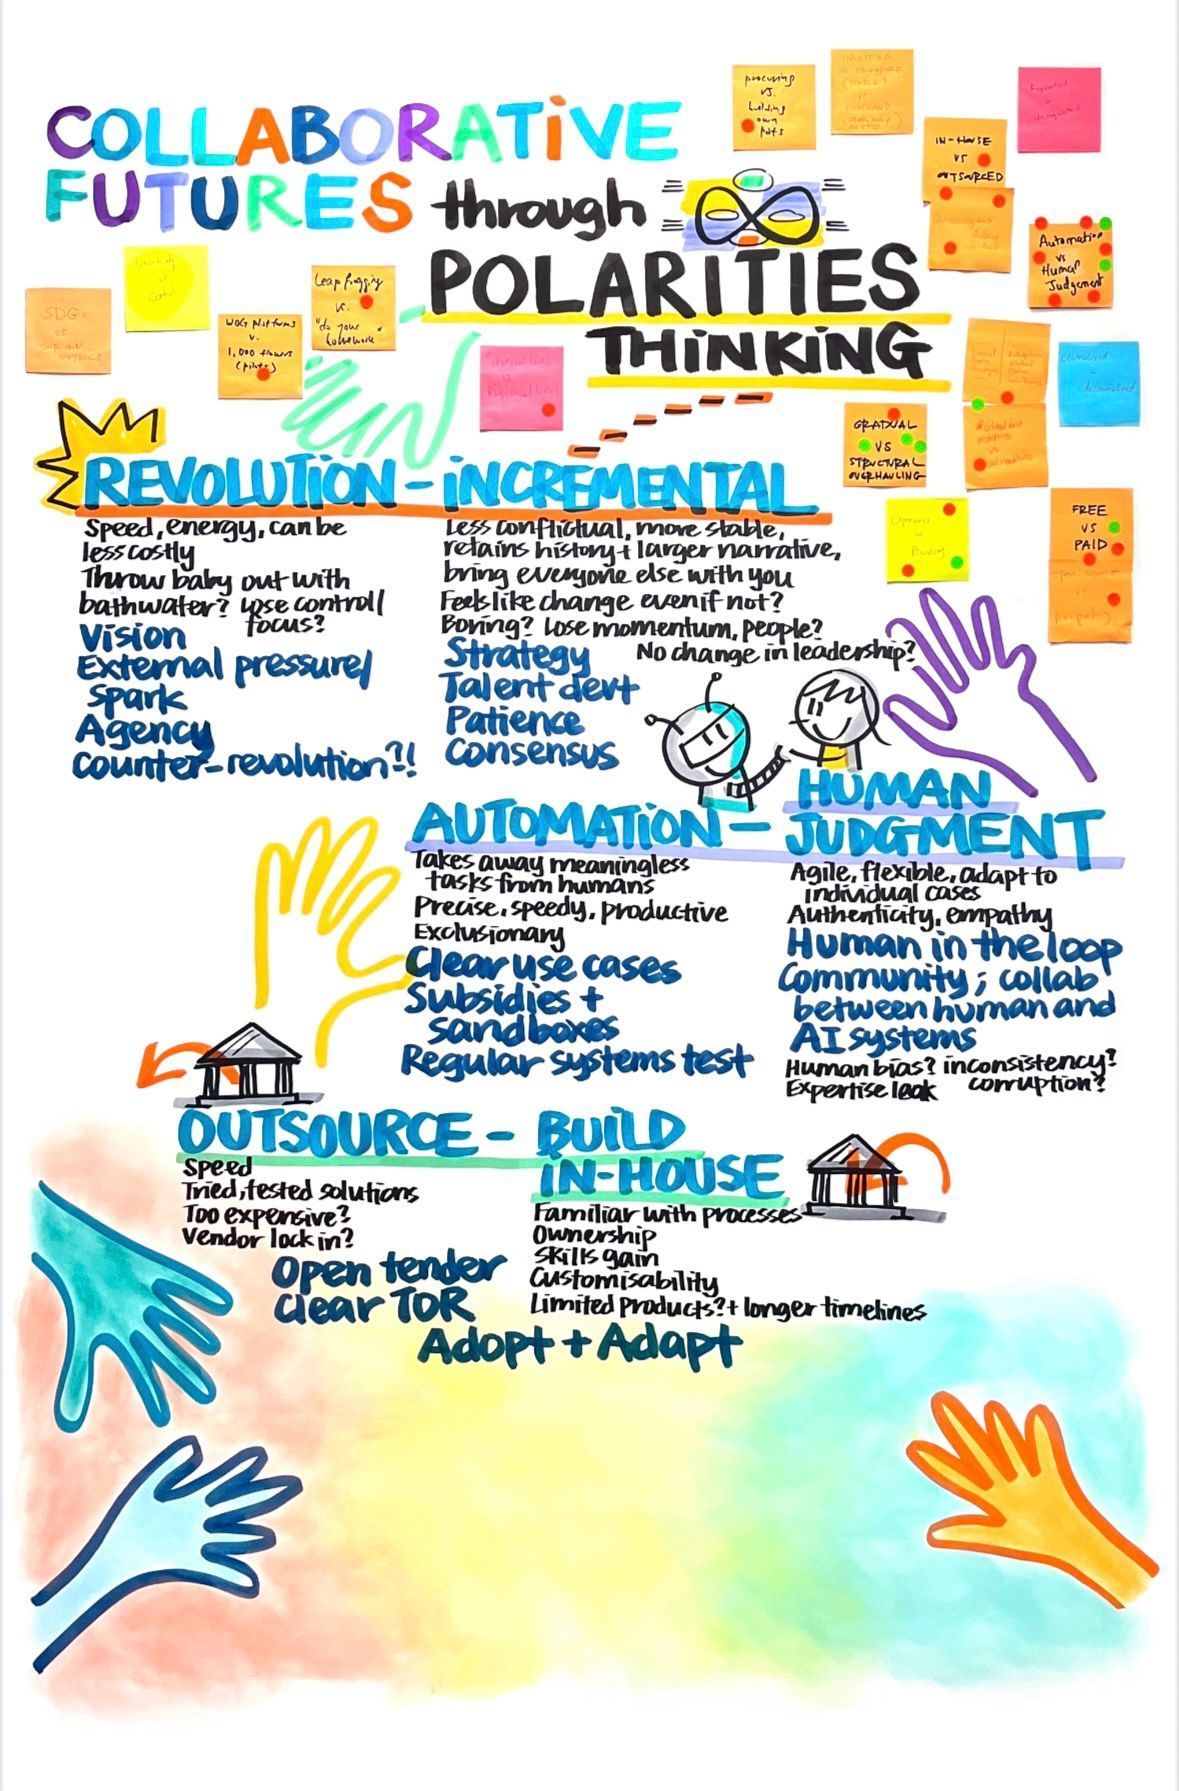 COLLABORATIVE
FUTURES through
POLARITIES
THINKING
procuring
vs.
building
own
IN-HOUSE
VS
OUTSOURCED
Automation
vs
Human
Judgement
SDGs
vs
Leap frogging
vs.
"do your
homework"
WOG platforms
v.
1,000 flowers
(pilots)
GRADUAL
VS
STRUCTURAL
OVERHAULING
FREE
VS
PAID
REVOLUTION - INCREMENTAL
Speed, energy, can be
less costly
Throw baby out with
bathwater? Lose control/
focus?
Vision
External pressure/
Spark
Agency
Counter-revolution?!!
Less conflictual, more stable,
retains history + larger narrative,
bring everyone else with you
Feels like change even if not?
Boring? Lose momentum, people?
No change in leadership?
Strategy
Talent devt
Patience
Consensus
AUTOMATION - HUMAN
JUDGMENT
Takes away meaningless
tasks from humans
Precise, speedy, productive
Exclusionary
Clear use cases
Subsidies +
sandboxes
Regular systems test
Agile, flexible, adapt to
individual cases
Authenticity, empathy
Human in the loop
Community; collab
between human and
AI systems
Human bias? inconsistency?
Expertise lack corruption?
OUTSOURCE - BUILD
IN-HOUSE
Speed
Tried, tested solutions
Too expensive?
Vendor lock in?
Open tender
Clear TOR
Familiar with processes
Ownership
Skills gain
Customisability
Limited products? + longer timelines
Adopt + Adapt